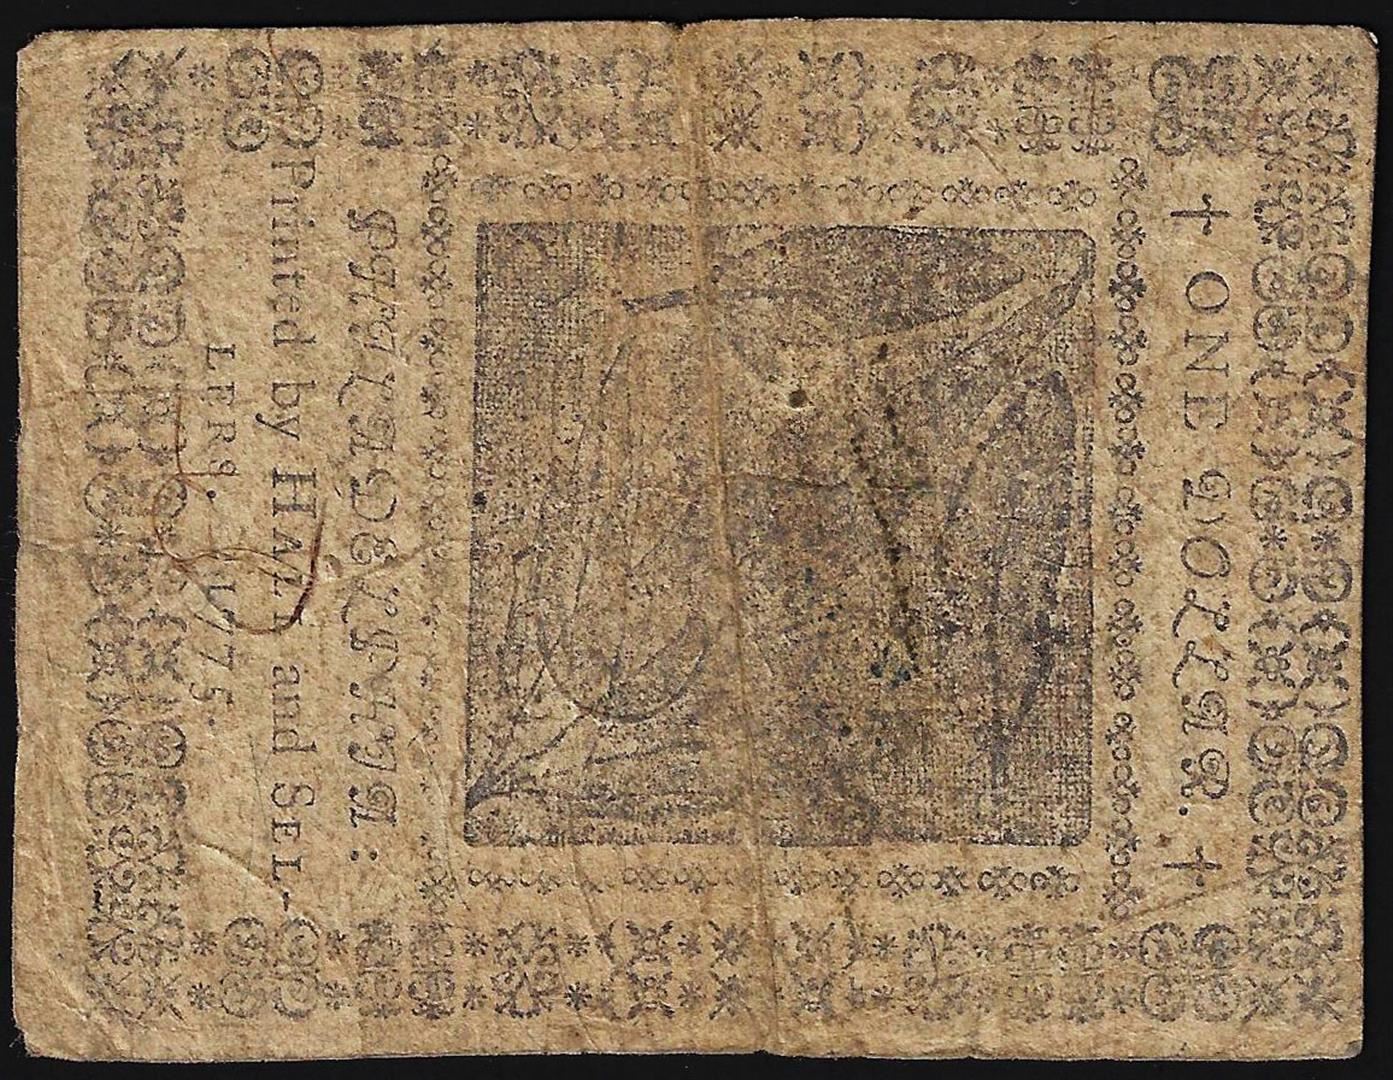 + ONE DOLLAR. +
PHILADELPHIA:
Printed by HALL and SEL-
LERS. 1775.